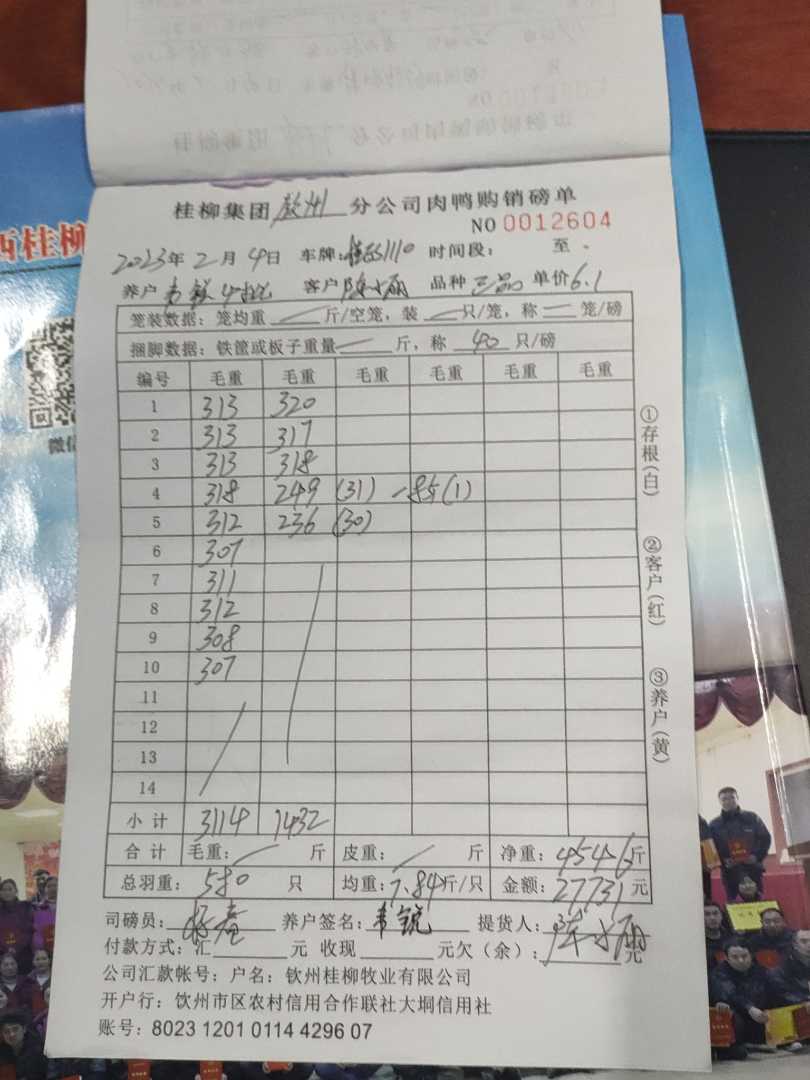 西桂柳
微信
桂柳集团钦州分公司肉鸭购销磅单
NO 0012604
2023年2月4日 车牌: 1110 时间段: 至
养户 客户 品种 三品 单价6.1
笼装数据: 笼均重 斤/空笼, 装 只/笼, 称 笼/磅
捆脚数据: 铁筐或板子重量 斤, 称 40 只/磅
编号 毛重 毛重 毛重 毛重 毛重 毛重
1 313 320
2 313 317
3 313 318
4 318 249 (31) -85(1)
5 312 236 (30)
6 307
7 311
8 312
9 308
10 307
11
12
13
14
小计 3114 1432
合计 毛重: 斤 皮重: 斤 净重: 4546斤
总羽重: 580 只 均重: 7.84斤/只 金额: 27731元
司磅员: 养户签名: 韦锐 提货人:
付款方式: 汇 元 收现 元欠(余): 元
公司汇款帐号: 户名: 钦州桂柳牧业有限公司
开户行: 饮州市区农村信用合作联社大垌信用社
账号: 8023 1201 0114 4296 07
①存根(白)
②客户(红)
③养户(黄)